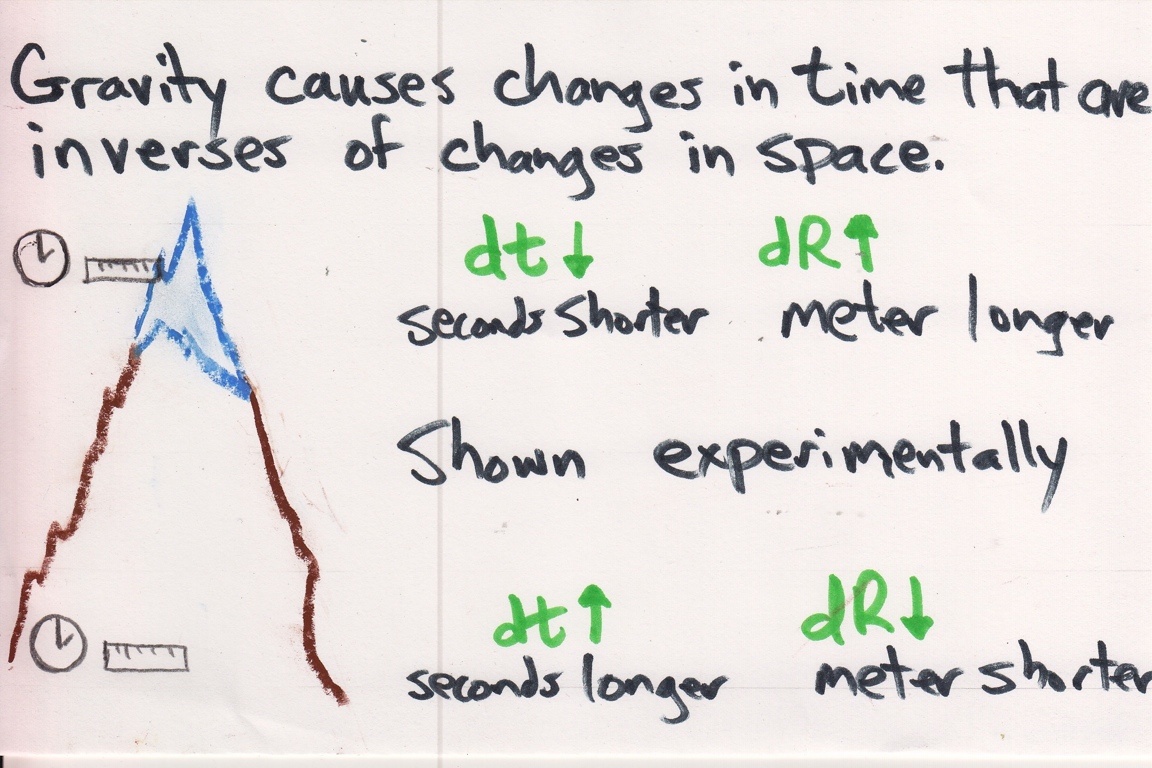 Gravity causes changes in time that are
inverses of changes in space.
dt↓ dR↑
seconds shorter meter longer
Shown experimentally
dt↑ dR↓
seconds longer meter shorter